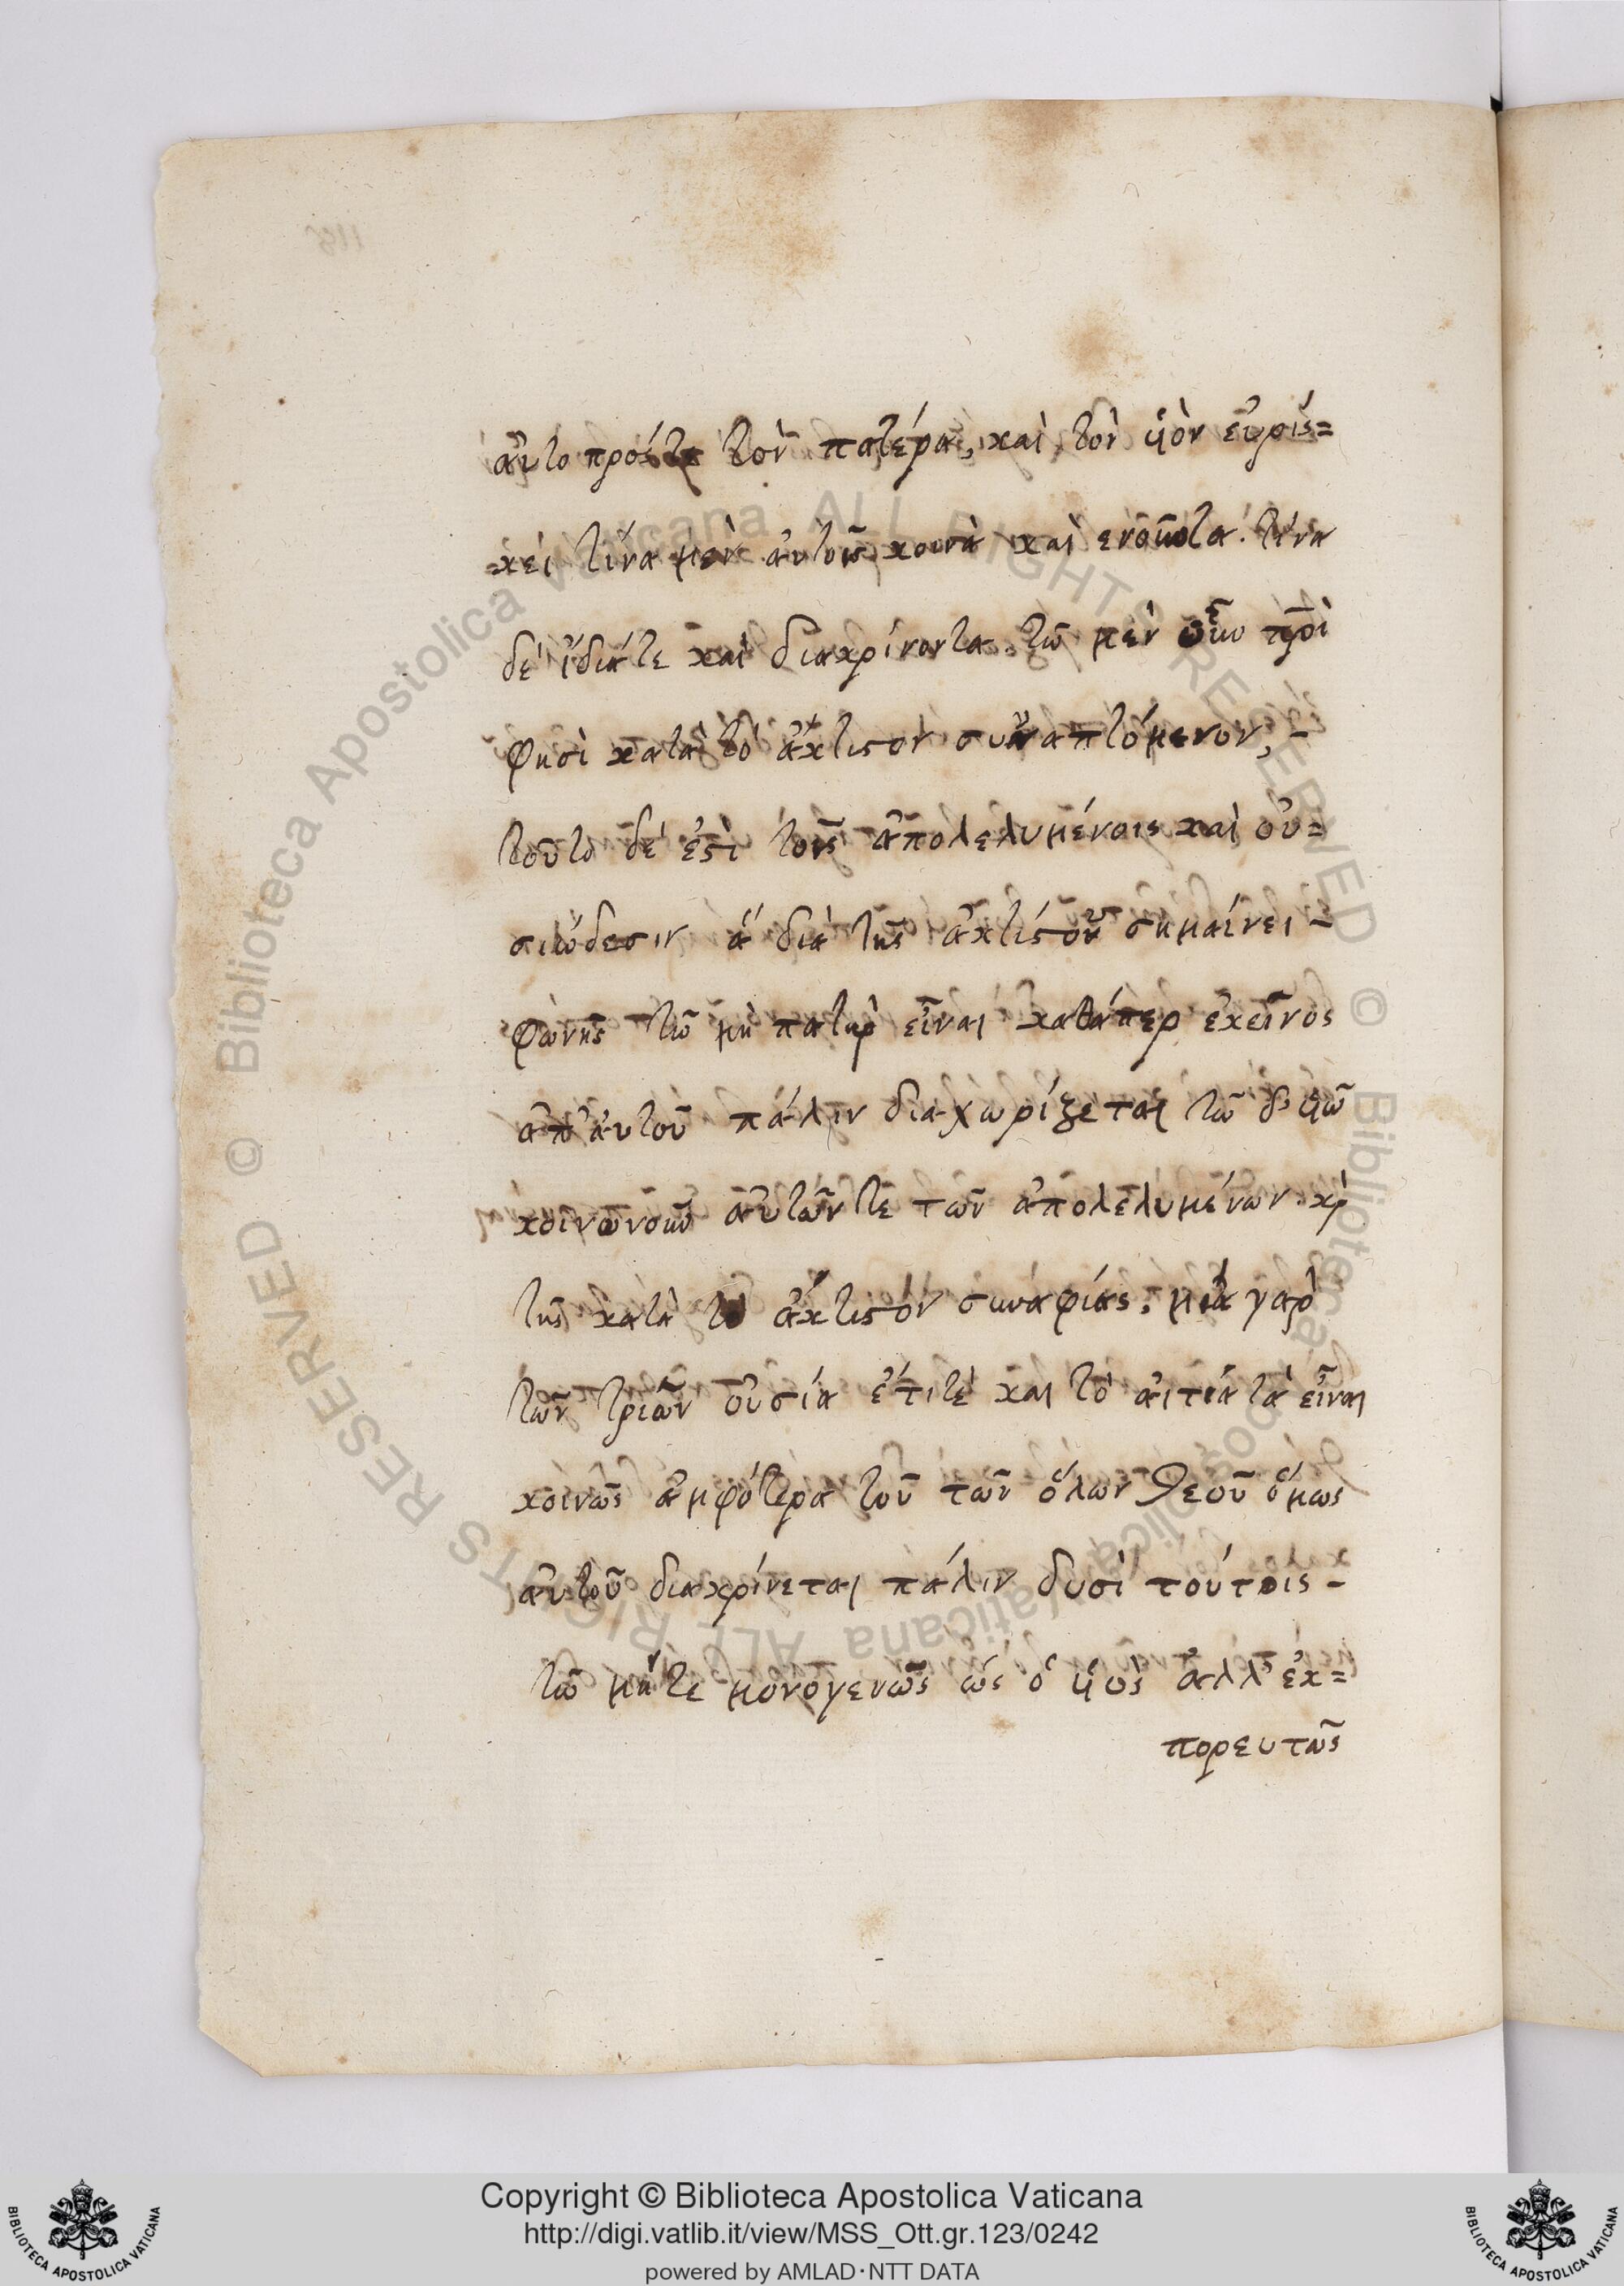 αὐτο πρόςτε τὸν πατέρα, καὶ τὸν ὑϊὸν εὑρίς=
=κει τίνα μὲν αὐτοῖς κοινὰ καὶ ἑνοῦντα. τίνα
δὲ ἴδιάτε καὶ διακρίνοντα. τῶ μὲν οὖν πρ̅ι̅
φησὶ κατὰ τὸ ἄκτιστον συναπτόμενον, -
τοῦτο δέ ἐστι τοῖς ἀπολελυμένοις καὶ οὐ=
σιώδεσιν ἅ διὰ τῆς ἀκτίστου σημαίνει -
φωνῆς τῶ μὴ πατὴρ εἶναι καθάπερ ἐκεῖνος
ἀπ' αὐτοῦ πάλιν διαχωρίζεται τῶ δ' ὑϊῶ
κοινωνοῦν αὐτῶν τε τῶν ἀπολελυμένων κὶ
τῆς κατὰ τὸ ἄκτιστον συναφίας. μία γαρ
τῶν τριῶν οὐσία ἔτιτε και τὸ αἰτιατὰ εἶναι
κοινῶς ἀμφότερα τοῦ τῶν ὅλων Θεοῦ ὅμως
αὐτοῦ διακρίνεται πάλιν δυσὶ τούτοις -
τῶ μήτε μονογενῶς ὡς ὁ ὑϊὸς ἀλλ' ἐκ=
πορευτῶς
Copyright © Biblioteca Apostolica Vaticana
http://digi.vatlib.it/view/MSS_Ott.gr.123/0242
powered by AMLAD·NTT DATA